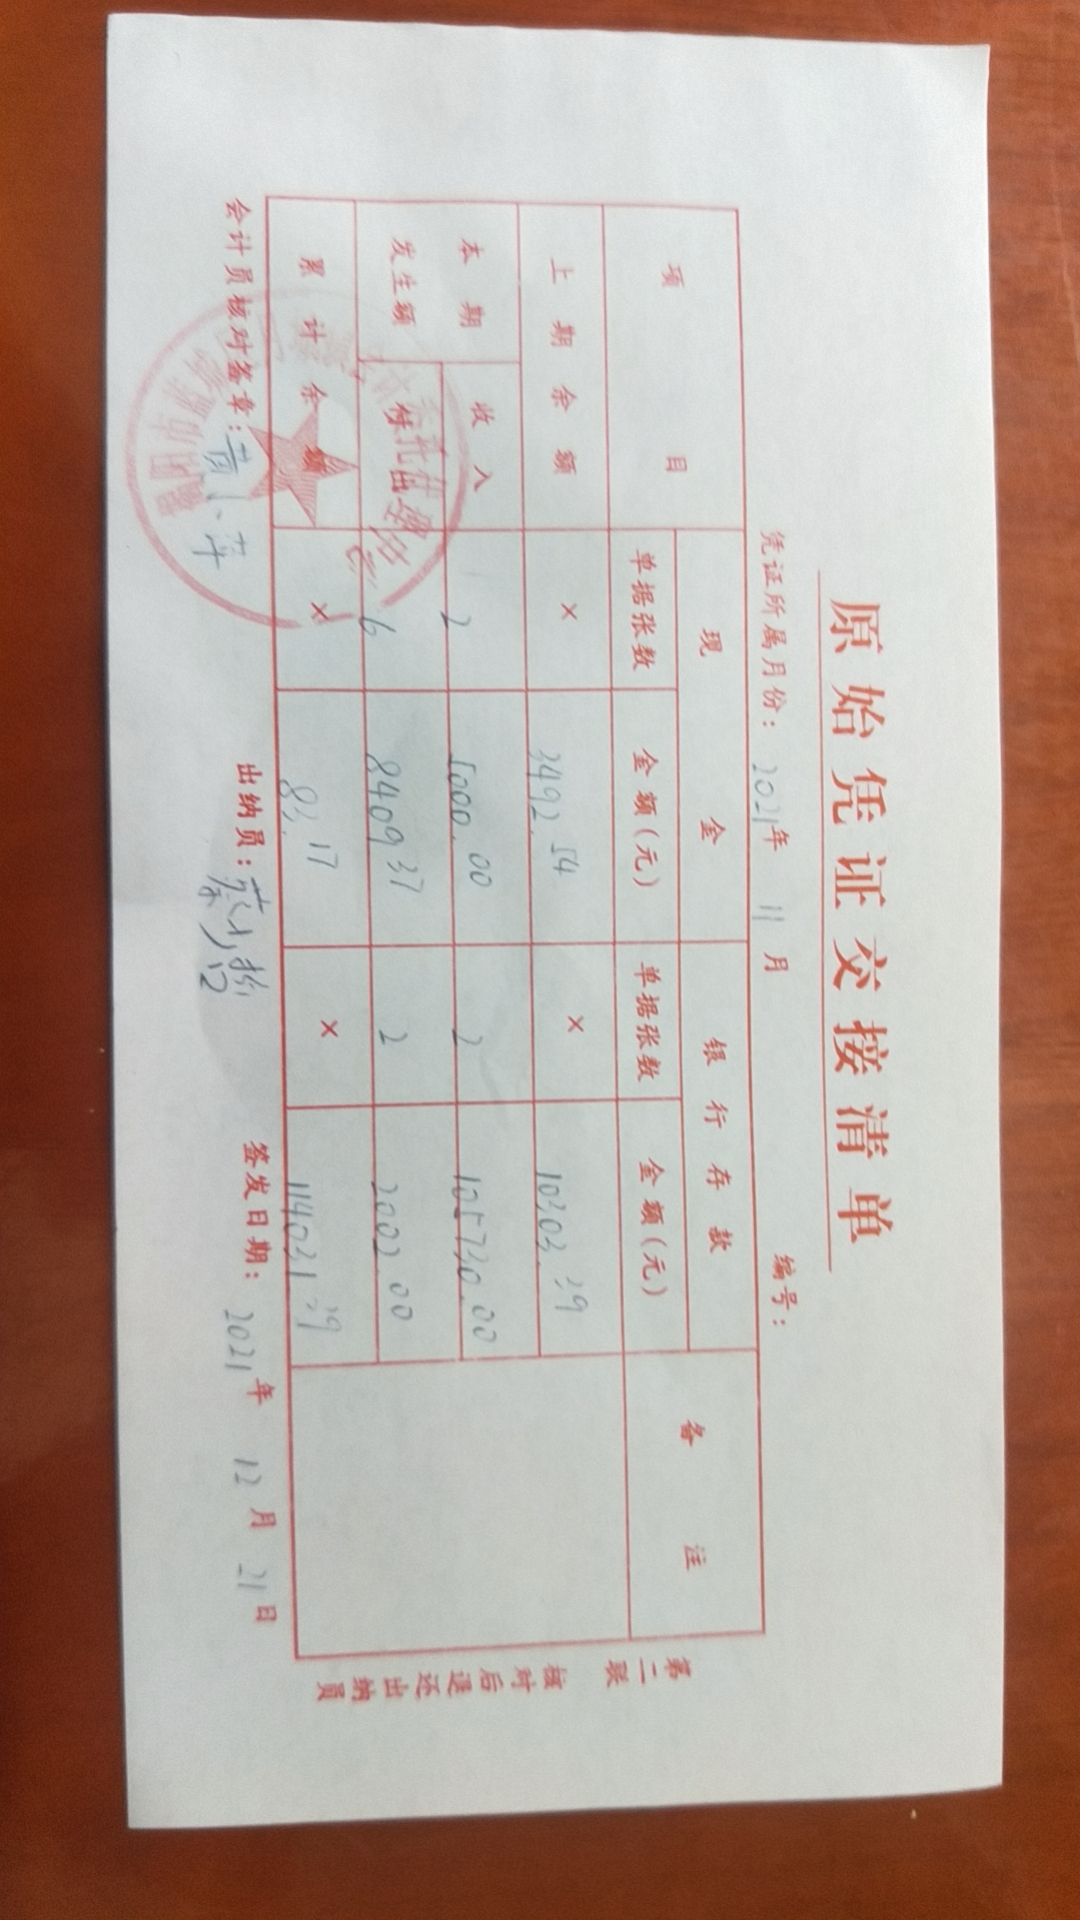 原始凭证交接清单
凭证所属月份: 2021年 11月 编号:
项目 现金 银行存款 备注
单据张数 金额(元) 单据张数 金额(元)
上期余额 × 3492.54 × 10303.39
本期发生额 收入 2 5000.00 2 105730.00
付出 6 8409.37 2 2002.00
累计余额 × 83.17 × 114031.39
会计员核对签章: 出纳员: 签发日期: 2021年 12月 21日
第二联 核对后退还出纳员